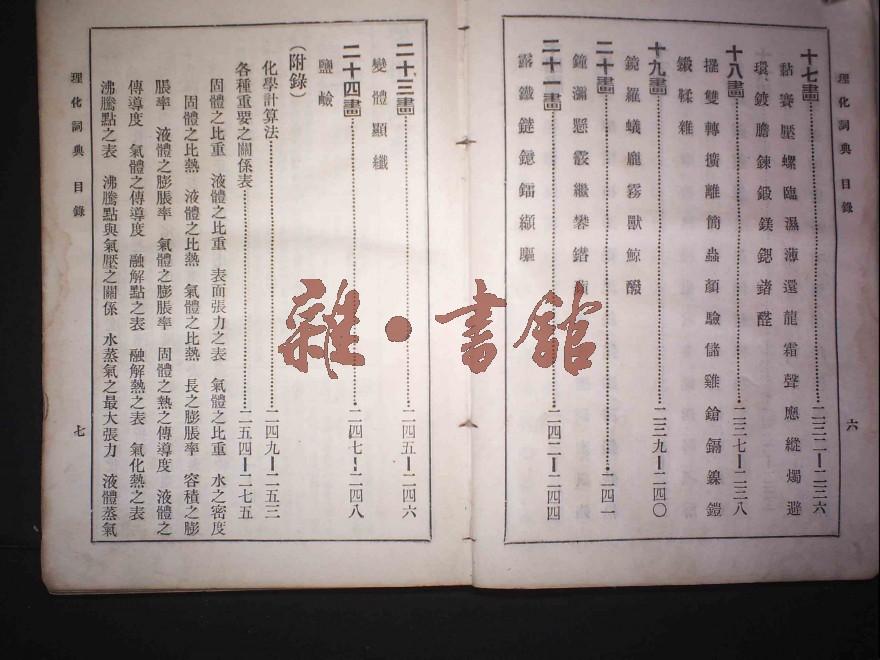 理化詞典 目錄
六
十七畫……二三二━二三六
黏賽壓螺臨濕薄還龍霜聲應縱燭避
環鍍膽鍊鍛鎂鍶鍺醛
十八畫……二三七━二三八
擺雙轉擴離簡蟲顏驗儲雞鎗鎘鎳鎧
鎩鞣雜
十九畫……二三九━二四〇
鏡羅蟻龐霧獸鯨醱
二十畫……二四一
鐘瀰懸霰繼攀鍇
二十一畫……二四二━二四四
露鐵鐽鐿鐳纈驅
二十三畫……二四五━二四六
變體顯纖
二十四畫……二四七━二四八
鹽鹼
(附錄)
化學計算法……二四九━二五三
各種重要之關係表……二五四━二七五
固體之比重 液體之比重 表面張力之表 氣體之比重 水之密度
固體之比熱 液體之比熱 氣體之比熱 長之膨脹率 容積之膨
脹率 液體之膨脹率 氣體之膨脹率 固體之熱之傳導度 液體之
傳導度 氣體之傳導度 融解點之表 融解熱之表 氣化熱之表
沸騰點之表 沸騰點與氣壓之關係 水蒸氣之最大張力 液體蒸氣
理化詞典 目錄
七
雜•書館